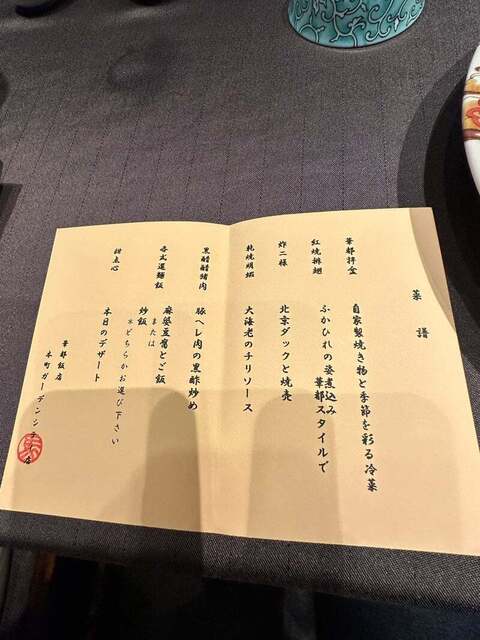 菜譜
華都拌盆
自家製焼き物と季節を彩る冷菜
紅焼排翅
ふかひれの姿煮込み
華都スタイルで
炸二様
北京ダックと焼売
乾焼明蝦
大海老のチリソース
黒醋醋猪肉
豚ヘレ肉の黒酢炒め
各式選麺飯
麻婆豆腐とご飯
または
炒飯
※どちらかお選び下さい
甜点心
本日のデザート
華都飯店
本町ガーデンシティ店